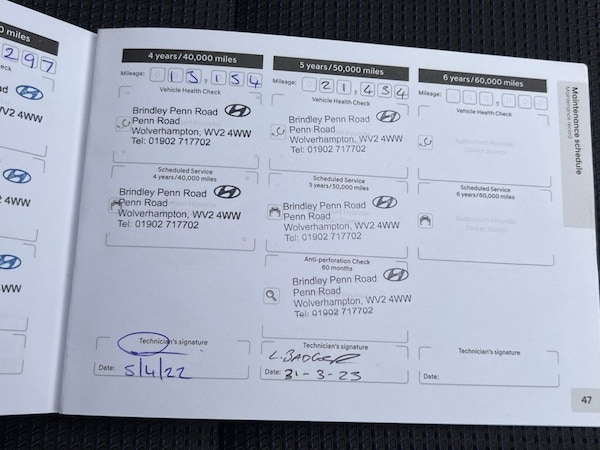 0 miles
297
WW
2 4WW
WW
4 years/40,000 miles
Mileage: 013,154
Vehicle Health Check
Brindley Penn Road
Penn Road
Wolverhampton, WV2 4WW
Tel: 01902 717702
Scheduled Service
4 years/40,000 miles
Brindley Penn Road
Penn Road
Wolverhampton, WV2 4WW
Tel: 01902 717702
Technician's signature
Date: 5/4/22
5 years/50,000 miles
Mileage: 021,434
Vehicle Health Check
Brindley Penn Road
Penn Road
Wolverhampton, WV2 4WW
Tel: 01902 717702
Scheduled Service
5 years/50,000 miles
Brindley Penn Road
Penn Road
Wolverhampton, WV2 4WW
Tel: 01902 717702
Anti-perforation Check
60 months
Brindley Penn Road
Penn Road
Wolverhampton, WV2 4WW
Tel: 01902 717702
Technician's signature
L. BADGER
Date: 31-3-23
6 years/60,000 miles
Mileage:
Vehicle Health Check
Scheduled Service
6 years/60,000 miles
Technician's signature
Date:
Maintenance schedule
Maintenance record
47